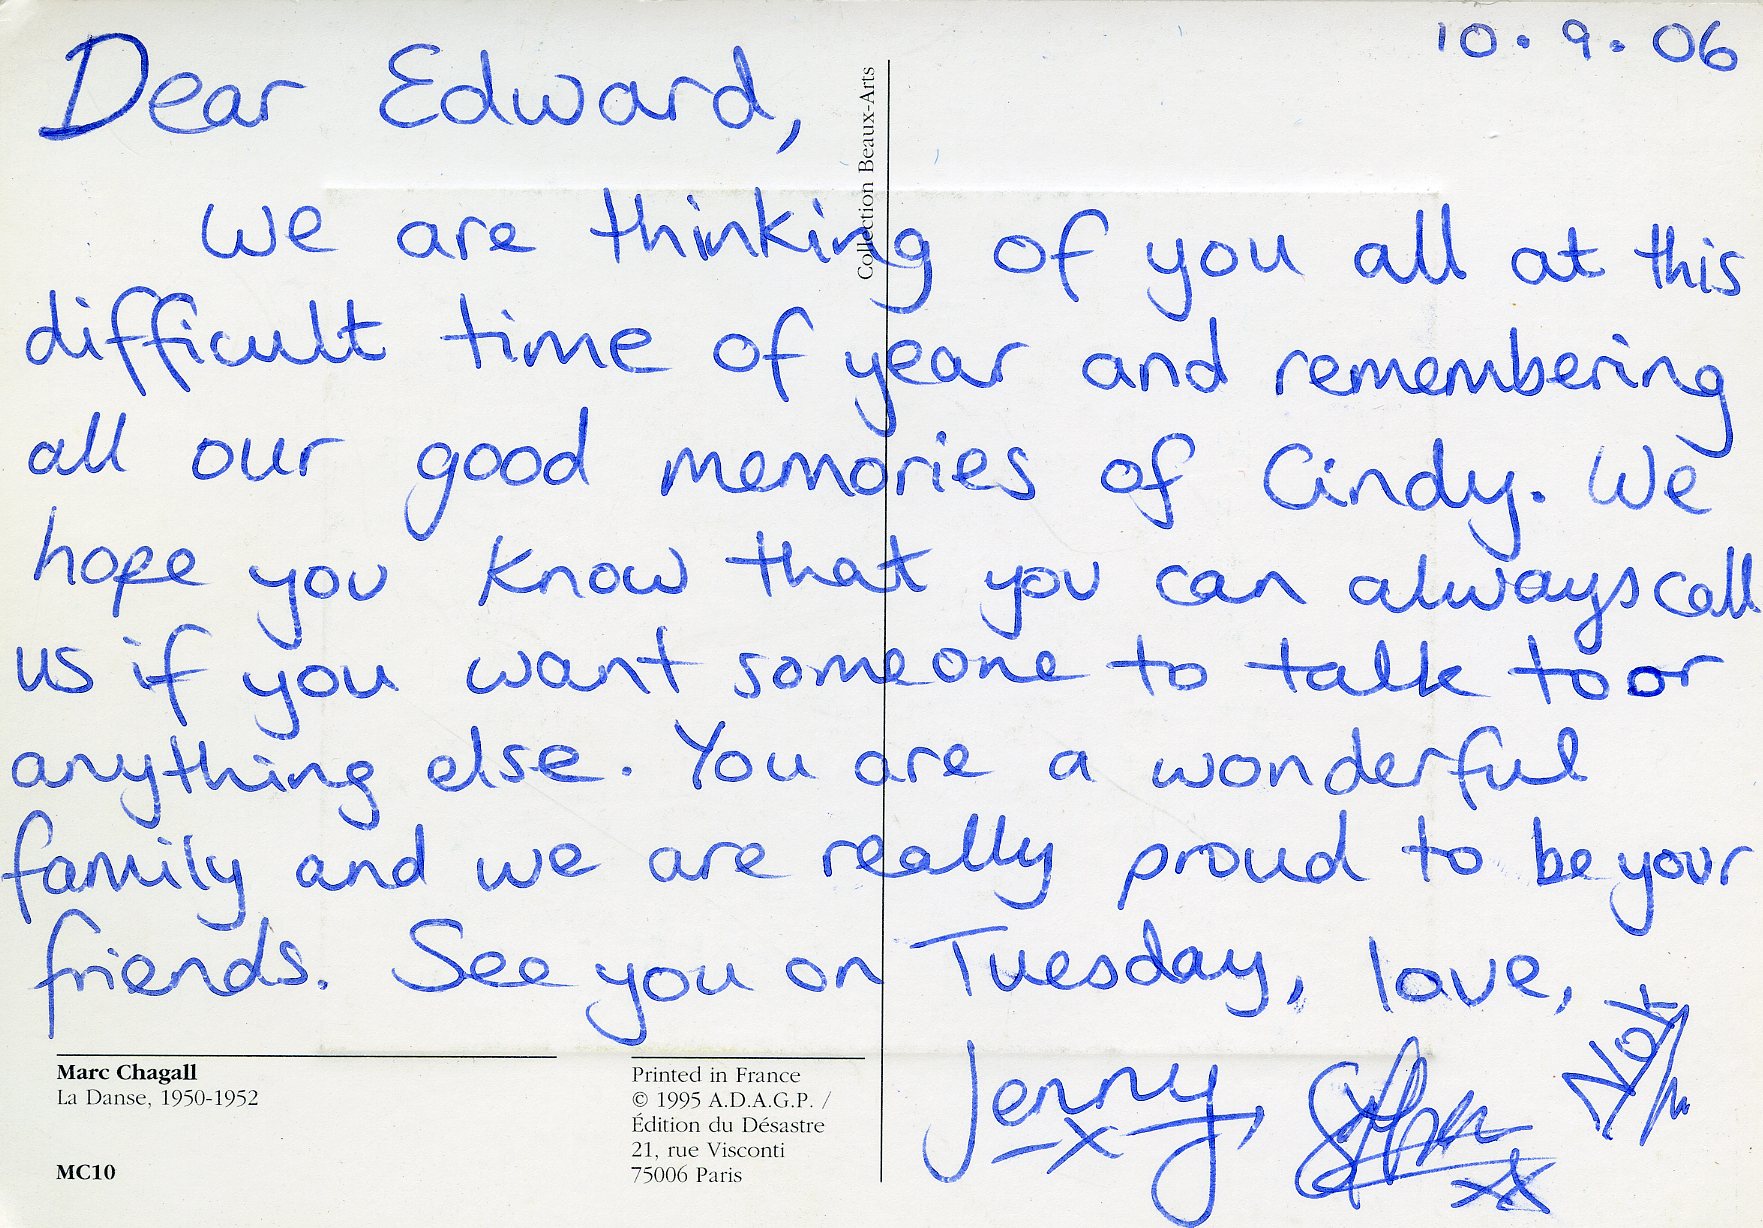 10.9.06
Dear Edward,
We are thinking of you all at this
difficult time of year and remembering
all our good memories of Cindy. We
hope you know that you can always call
us if you want someone to talk to or
anything else. You are a wonderful
family and we are really proud to be your
friends. See you on Tuesday, love,
Jenny, x
xx
Collection Beaux-Arts
Marc Chagall
La Danse, 1950-1952
MC10
Printed in France
© 1995 A.D.A.G.P. /
Édition du Désastre
21, rue Visconti
75006 Paris